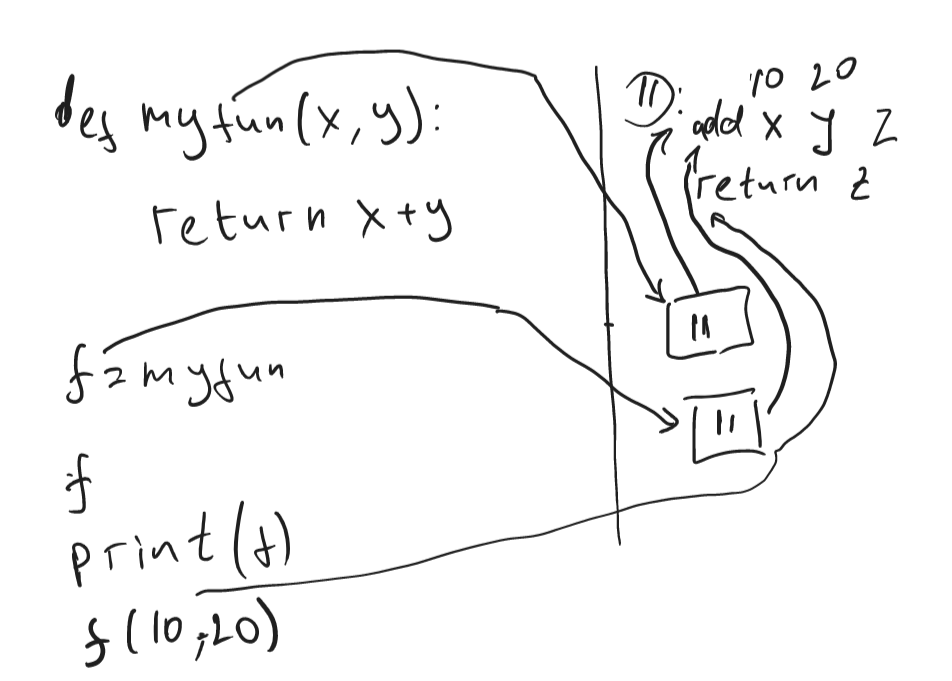 def myfun(x,y):
return x+y
f=myfun
f
print(f)
f(10,20)
10 20
11: add x y z
return z
11
11